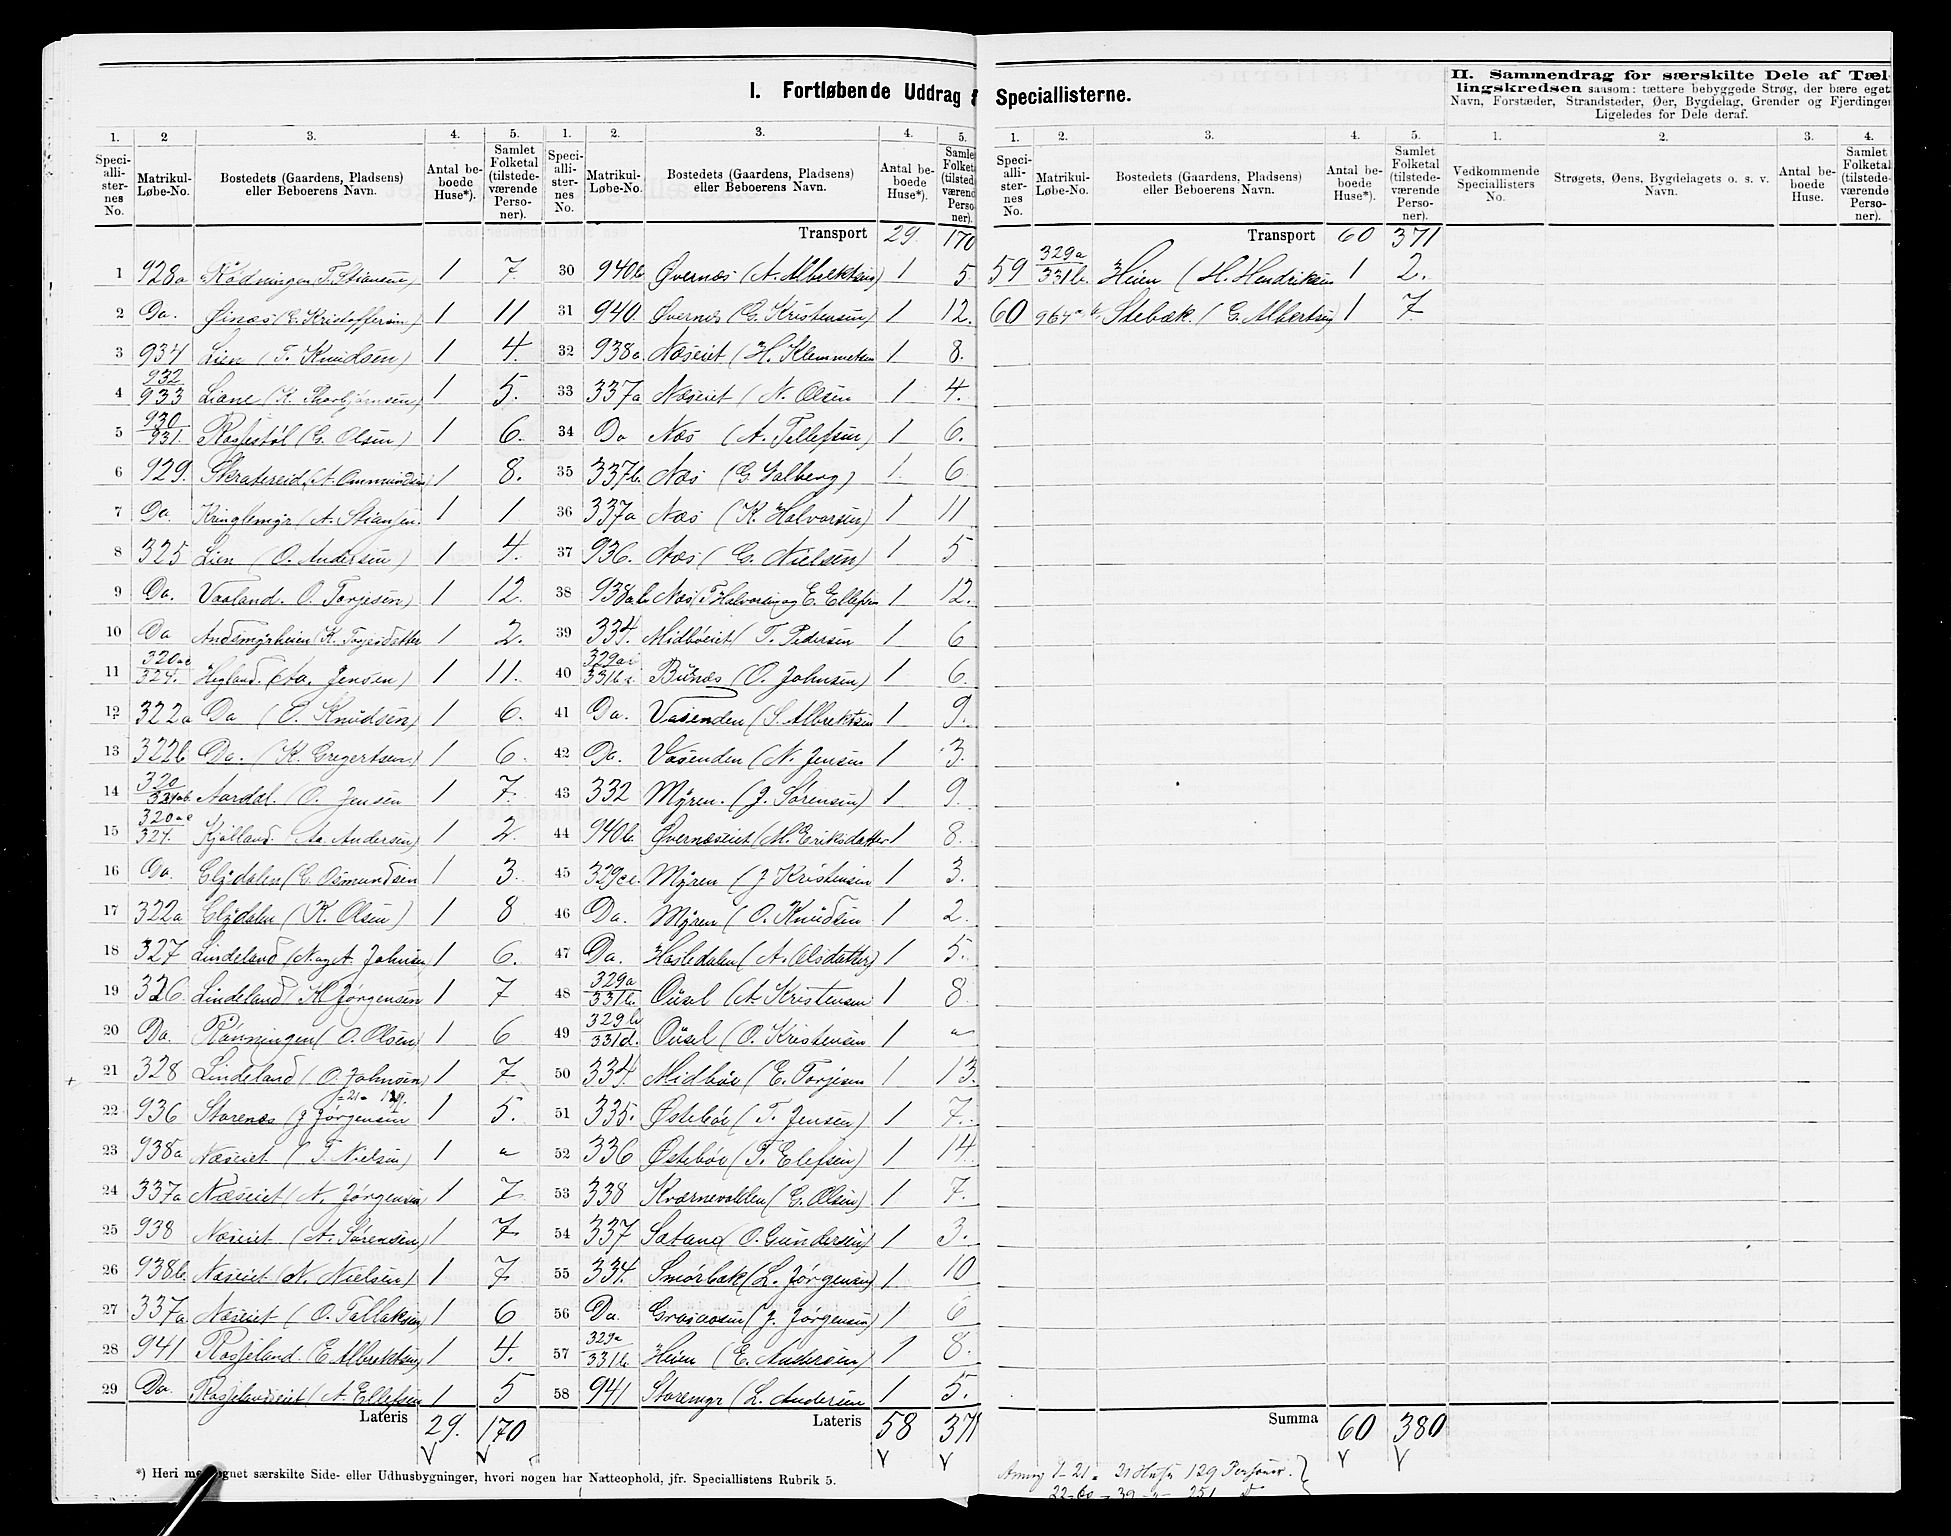 I. Fortløbende Uddrag f Speciallisterne.
1. 2 3. 4. 5.
Speciallisternes No. Matrikul-Løbe-No. Bostedets (Gaardens, Pladsens) eller Beboerens Navn. Antal beboede Huse*). Samlet Folketal (tilstedeværende Personer).
1 928a Rødningen T. Stiansen) 1 7.
2 Do. Øinæs (E. Kristoffersen) 1 11
3 934 Lien (T. Knudsen) 1 4.
4 932/933 Liane (K. Thorbjørnsen) 1 5.
5 930/931. Rosfestøl (G. Olsen) 1 6.
6 929. Skratereid (A. Ommundsen 1 8.
7 Do. Kringlemyr (A. Stiansen. 1 1
8 325 Lien (O. Andersen) 1 4.
9 Do. Vaaland. O. Torjesen) 1 12.
10 Do Andsmyrheien (K. Torjesdatter 1 2.
11 320ac/324. Hegland. (Aa. Jensen) 1 11.
12 322a Do (O. Knudsen) 1 6.
13 322b Do. (K. Gregertsen) 1 6.
14 320/321ab. Aardal. (O. Jensen 1 7.
15 320ac/324. Kjølland. (Aa. Andersen) 1 2.
16 Do. Elydalen (E. Osmundsen 1 3.
17 322a Elydalen (K. Olsen) 1 8
18 327 Lindeland (N. og A. Johnsen 1 6.
19 326. Lindeland K. Jørgensen 1 7
20 Do. Rønningen (O. Olsen) 1 6
21 328 Lindeland (O. Johnsen) 1 7
22 936 Storenes (J Jørgensen 1 5.
23 938a Næseiet (T. Nielsen) 1 "
24 337a Næseiet (N. Jørgensen 1 7
25 938 Næseiet (A. Sørensen) 1 7
26 938b. Næseiet (N. Nielsen) 1 7
27 337a. Næseiet (O. Tallaksen) 1 6
28 941 Rosfjeland. (E Albrektsen) 1 4.
29 Do. Rosfjelandseiet (A. Ellefsen 1 5
Lateris 29. 170
*) Heri me gnet særskilte Side- eller Udhusbygninger, hvori nogen har Natteophold, jfr. Speciallistens Rubrik 5.
1. 2. 3. 4. 5.
Speciallisternes No. Matrikul-Løbe-No. Bostedets (Gaardens, Pladsens) eller Beboerens Navn. Antal beboede Huse*). Samlet Folketal (tilstedeværende Personer).
Transport 29. 170
30 940b. Øvernæs (A. Albrektsen) 1 5.
31 940. Øvernæs (G. Kristensen) 1 12.
32 938a Næseiet (H. Klemmetsen 1 8.
33 337a Næseiet (N. Olsen 1 4.
34 Do Næs (A. Tellefsen) 1 6.
35 337b. Næs (G. Salberg) 1. 6
36 337a Næs (K. Halvorsen) 1 11
37 936. Næs (G. Nielsen) 1 5
38 938ab Næs (T Halvorsen og E. Ellefsen 1 12.
39 334. Midbøeiet (T. Pedersen 1 6
40 Bunæs (O. Johnsen) 1 6.
41 Do. Vasenden (S. Albrektsen 1 9.
42 Do. Vasenden (N. Jensen 1 3.
43 332 Myren. (J. Sørensen) 1 9.
44 940b. Øvernæseiet (M. Eriksdatter 1 8.
45 Myren (J Kristensen 1 3.
46 Do. Myren (O. Knudsen 1 2.
47 Do. Hasledalen (A. Olsdatter) 1 5.
48 329a/331b. Ousel (A. Kristensen 1 8
49 329b/331d. Ousel (O. Kristensen 1 "
50 334. Midbøe (E. Torjesen 1 13.
51 335. Østebøe (T. Jensen) 1 7.
52 336 Østebøe (T. Elefsen) 1 14.
53 338 Kværnevolden (G. Olsen) 1 7.
54 337 Satand (O. Gundersen) 1 3.
55 334. Smørbæk (L. Jørgensen) 1 10
56 Do. (J. Jørgensen) 1 6
57 329a/331b Heien (E. Andersen) 1 8.
58 941 Storemyr (L. Andersen 1 5.
Lateris 58 371
1. 2. 3. 4. 5.
Speciallisternes No. Matrikul-Løbe-No. Bostedets (Gaardens, Pladsens) eller Beboerens Navn. Antal beboede Huse*). Samlet Folketal (tilstedeværende Personer).
Transport 60 371
59 329a/331b. Heien (H. Hendriksen 1 2.
60 Stebæk. (G. Albertsen) 1 7.
Summa 60 380
1-21 = 21 Huse 129 Personer.
22-60 - 39 -"- 251 Do
II. Sammendrag for særskilte Dele af Tællingskredsen saasom: tættere bebyggede Strøg, der bære eget Navn, Forstæder, Strandsteder, Øer, Bygdelag, Grender og Fjerdinger. Ligeledes for Dele deraf.
1. 2. 3. 4.
Vedkommende Speciallisters No. Strøgets, Øens, Bygdelagets o. s. v. Navn. Antal beboede Huse. Samlet Folketal (tilstedeværende Personer).